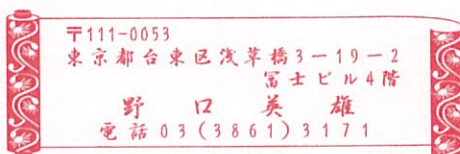 〒111-0053
東京都台東区浅草橋3-19-2
冨士ビル4階
野口英雄
電話03(3861)3171